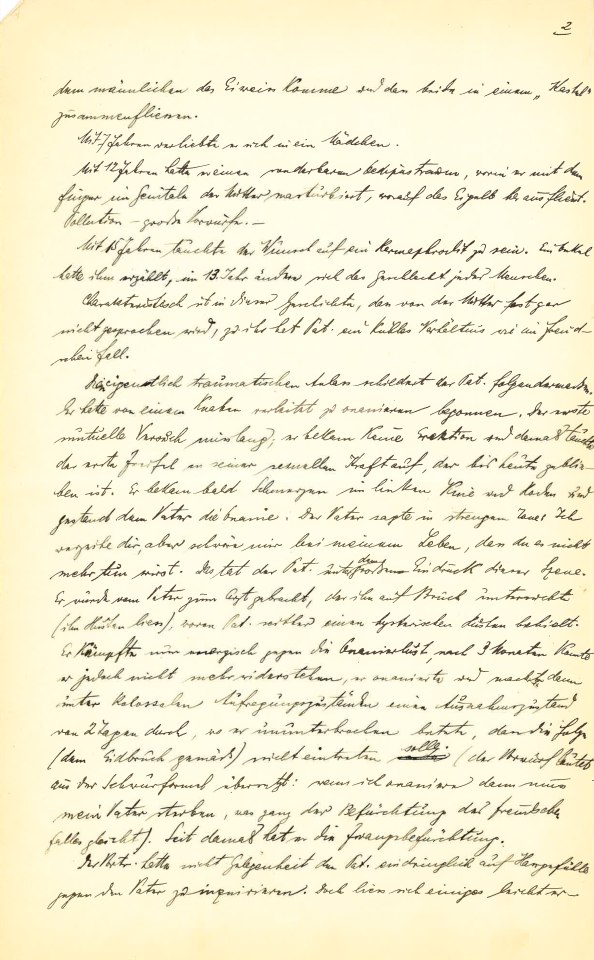 2
dem männlichen das Eiweiss komme und dass beide in einem „Kastel"
zusammenfliessen.
Mit 7 Jahren verliebte er sich in ein Mädchen.
Mit 12 Jahren hatte er einen sonderbaren worin er mit dem
Finger im Genitale der Mutter masturbiert, worauf das Eigelb herausfliesst.
Pollution – grosse Vorwürfe. –
Mit 15 Jahren tauchte der Wunsch auf ein Hermaphrodit zu sein. Ein
hatte ihm erzählt, im 13. Jahr ändere sich das Geschlecht jedes Menschen.
Charakteristisch ist in dieser Geschichte, dass von der Mutter fast gar
nicht gesprochen wird, zu ihr hat Pat. ein kühles Verhältnis wie im Freud-
schen Fall.
Den eigentlich traumatischen Anlass schildert der Pat. folgendermassen.
Er hatte von einem Knaben verleitet zu onanieren begonnen. Der erste
mutuelle Versuch misslang, er bekam keine Erektion und damals tauchte
der erste Zweifel an seiner sexuellen Kraft auf, der bis heute geblie-
ben ist. Er bekam bald Schmerzen im linken Knie und Hoden und
gestand dem Vater die Onanie. Der Vater sagte in strengem Tone: Ich
verzeihe dir, aber schwöre mir bei meinem Leben, dass du es nicht
mehr tun wirst. Das tat der Pat. unter dem Eindruck dieser Szene.
Er wurde vom Vater zum Arzt gebracht, der ihn auf Bruch untersuchte
(ihn Husten liess), wovon Pat. seither einen hysterischen Husten behielt.
Er kämpfte nun energisch gegen die Onanierlust, nach 3 Monaten konnte
er jedoch nicht mehr widerstehen, er onanierte und machte dann
unter kolossalen Aufregungszuständen einen Ausnahmszustand
von 2 Tagen durch, wo er ununterbrochen betete, dass die Folge
(dem Eidbruch gemäss) nicht eintreten solle (der Vorwurf lautet
aus der Schwurformel übersetzt: wenn ich onaniere dann muss
mein Vater sterben, was ganz der Befürchtung des Freudschen
Falles gleicht). Seit damals hat er die Zwangsbefürchtung.
Der Vortr. hatte nicht Gelegenheit den Pat. eindringlich auf Hassgefühle
gegen den Vater zu inquirieren. Doch liess sich einiges leicht er-